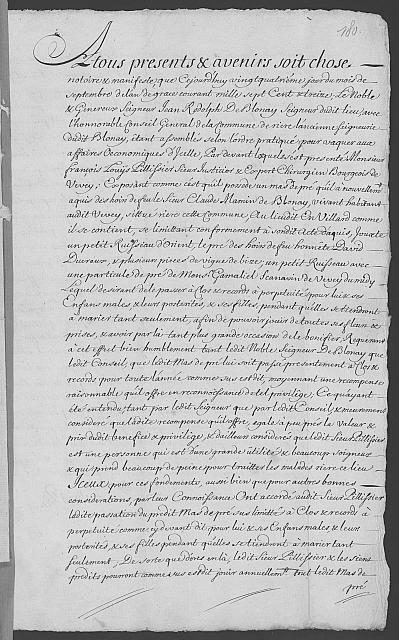 180.
A tous presents & avenirs soit chose
notoire & manifeste, que Cejourdhuy vingtquatrième jour du mois de
Septembre de l'an de grace courant mille sept Cent & treize, Le Noble
& Genereux Seigneur Jean Rodolph De Blonay Seigneur dudit lieu, avec
l'honnorable Conseil General de la Commune de rière l'ancienne Seigneurie
dudit Blonay, étant assemblés selon l'ordre pratiqué pour vaquer aux
affaires Oeconomiques d'Icelle, Par devant lesquels s'est presenté Monsieur
françois Louis Pillissier Sieur Justicier & Expert Chirurgien Bourgeois de
Vevey, Exposant comme c'est qu'il possede un mas de pré qu'il a nouvellemt
aquis des hoirs de feu le Sieur Claude Mamin de Blonay, vivant habitant
audit Vevey, situé rière cette Commune, Au lieu dit En Villard comme
il se contient, se limittant conformement à son dit Acte d'aquis, Jouxte
un petit Ruisseau d'Orient, le pré des hoirs de feu honnête David
Ducraux, & plusieurs pieces de vigne de bize, un petit Ruisseau avec
une particule de pré de Monsr Gamaliel de Vevey du midy
Lequel desirant de le passer à Clos & records à perpetuité pour lui & ses
Enfans males & leur posterité, & ses filles, pendant quelles se tiendront
à marier tant seulement, afin de pouvoir jouir de toutes ses fleurs &
prises, & avoir par là tant plus grande occasion de le bonifier, Requerant
à cet effet bien humblement tant ledit Noble Seigneur De Blonay que
ledit Conseil, que ledit Mas de pré lui soit passé presentement à Clos &
records pour toute l'année comme sus est dit, moyennant une recompense
raisonnable qu'il offre en reconnoissance de tel privilége, Ce qu'ayant
été entendu tant par ledit Seigneur que par ledit Conseil & meurement
consideré que la dite recompense qu'il offre, egale à peu près la Valeur &
prix dudit benefice & privilége, & d'ailleurs considerés que ledit Sieur Pillissier
est une personne qui est d'une grande utilité & beaucoup soigneux
& qui prend beaucoup de peine pour traitter les malades rière ce lieu
Iceux pour ces fondements, aussi bien que pour autres bonnes
considerations, par leur Connoissance Ont accordé audit Sieur Pillissier
ladite passation du predit Mas de pré sus limitté à Clos & records à
perpetuité comme cy devant dit, pour lui & ses Enfans males & leur
posterité, & ses filles pendant quelles se tiendront à marier tant
seulement, De sorte que dores en là, ledit Sieur Pillissier & les siens
predits pourront comme sus est dit jouir annuellemt tout ledit Mas de
pré